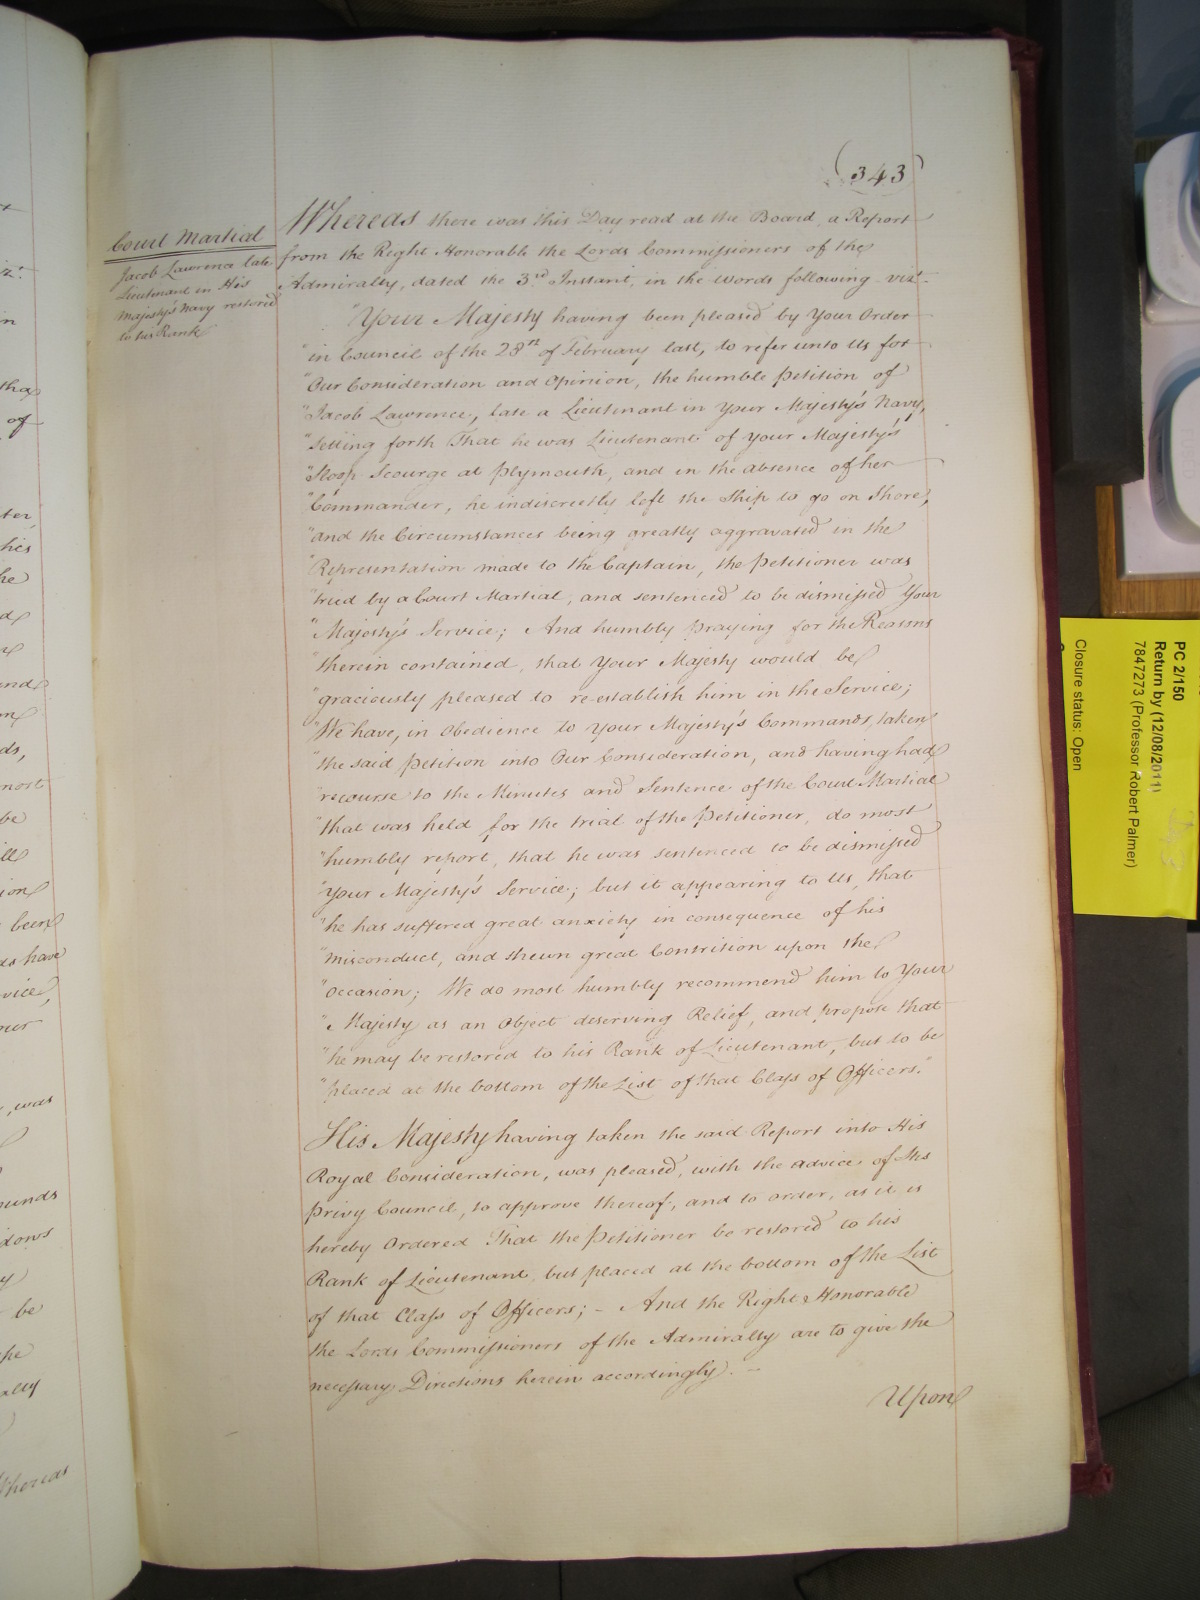 (343)
Court Martial
Jacob Lawrence late
Lieutenant in His
Majesty's Navy restored
to his Rank
Whereas there was this Day read at the Board, a Report
from the Right Honorable the Lords Commissioners of the
Admiralty, dated the 3rd Instant, in the words following vizt.
"Your Majesty having been pleased by Your Order
"in Council of the 28th of February last, to refer unto Us for
"Our Consideration and Opinion, the humble Petition of
"Jacob Lawrence, late a Lieutenant in Your Majesty's Navy,
"setting forth That he was Lieutenant of Your Majesty's
"Sloop Scourge at Plymouth, and in the absence of her
"Commander, he indiscreetly left the Ship to go on Shore,
"and the Circumstances being greatly aggravated in the
"Representation made to the Captain, the Petitioner was
"tried by a Court Martial, and sentenced to be dismissed Your
"Majesty's Service; And humbly praying for the Reasons
"therein contained, that Your Majesty would be
"graciously pleased to re-establish him in the Service;
"We have, in Obedience to Your Majesty's Commands, taken
"the said Petition into Our Consideration, and having had
"recourse to the Minutes and Sentence of the Court Martial
"that was held for the trial of the Petitioner, do most
"humbly report, that he was sentenced to be dismissed
"Your Majesty's Service; but it appearing to Us, that
"he has suffered great anxiety in consequence of his
"misconduct, and shewn great Contrition upon the
"occasion; We do most humbly recommend him to Your
"Majesty as an Object deserving Relief, and propose that
"he may be restored to his Rank of Lieutenant, but to be
"placed at the bottom of the List of that Class of Officers."
His Majesty having taken the said Report into His
Royal Consideration, was pleased, with the advice of His
Privy Council, to approve thereof, and to order, as it is
hereby Ordered That the Petitioner be restored to his
Rank of Lieutenant, but placed at the bottom of the List
of that Class of Officers; - And the Right Honorable
the Lords Commissioners of the Admiralty are to give the
necessary Directions herein accordingly. -
Upon
PC 2/150
Return by (12/08/2011)
7847273 (Professor Robert Palmer)
Closure status: Open